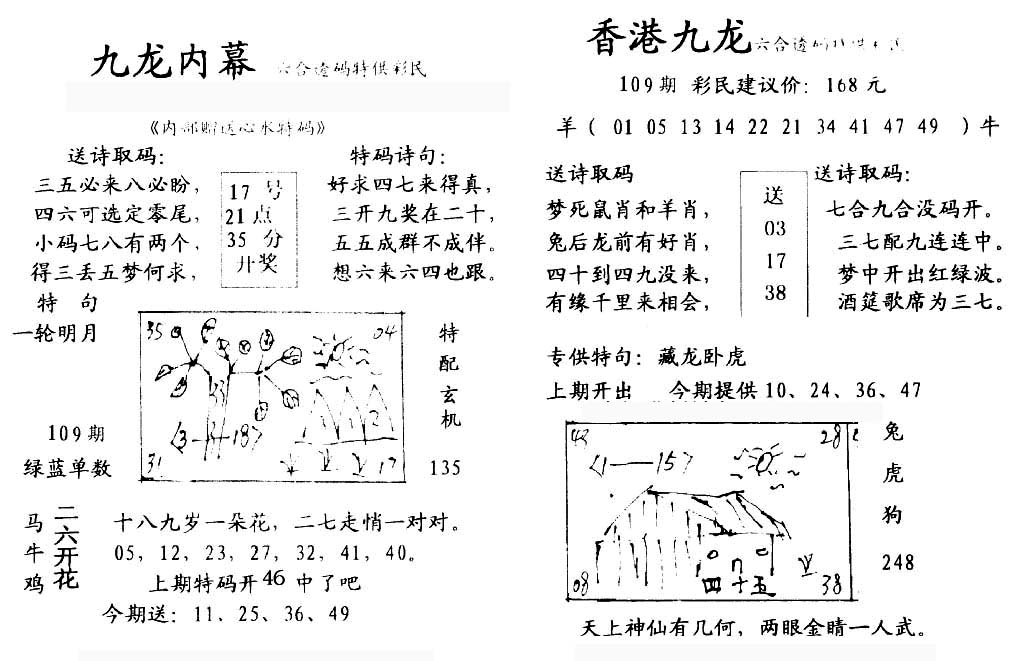 九龙内幕 六合透码特供彩民
《内部赠送心水特码》
送诗取码：
三五必来八必盼，
四六可选定零尾，
小码七八有两个，
得三丢五梦何求，
17 号
21 点
35 分
开奖
特码诗句：
好求四七来得真，
三开九奖在二十，
五五成群不成伴。
想六来六四也跟。
特 句
一轮明月
109期
绿蓝单数
35
04
〈3——187〉
1 1 2
31
17
特
配
玄
机
135
马
牛
鸡
二六开花
十八九岁一朵花，二七走悄一对对。
05，12，23，27，32，41，40。
上期特码开46 中了吧
今期送：11、25、36、49
香港九龙 六合透码特供彩民
109期 彩民建议价：168元
羊（ 01 05 13 14 22 21 34 41 47 49 ）牛
送诗取码
梦死鼠肖和羊肖，
兔后龙前有好肖，
四十到四九没来，
有缘千里来相会，
送
03
17
38
送诗取码：
七合九合没码开。
三七配九连连中。
梦中开出红绿波。
酒筵歌席为三七。
专供特句：藏龙卧虎
上期开出 今期提供10、24、36、47
28
〈1——157
四十五
08
38
兔
虎
狗
248
天上神仙有几何，两眼金睛一人武。